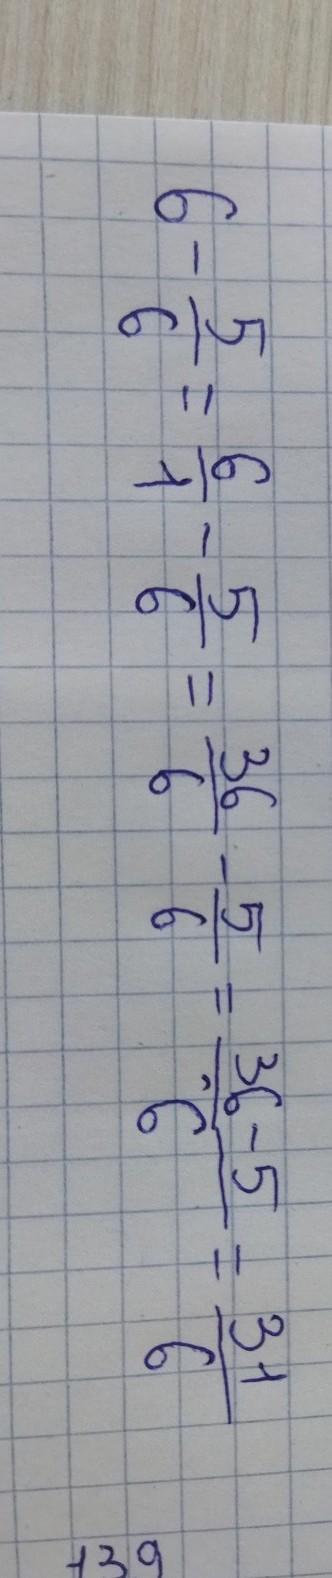 6 - 5/6 = 6/1 - 5/6 = 36/6 - 5/6 = 36-5/6 = 31/6